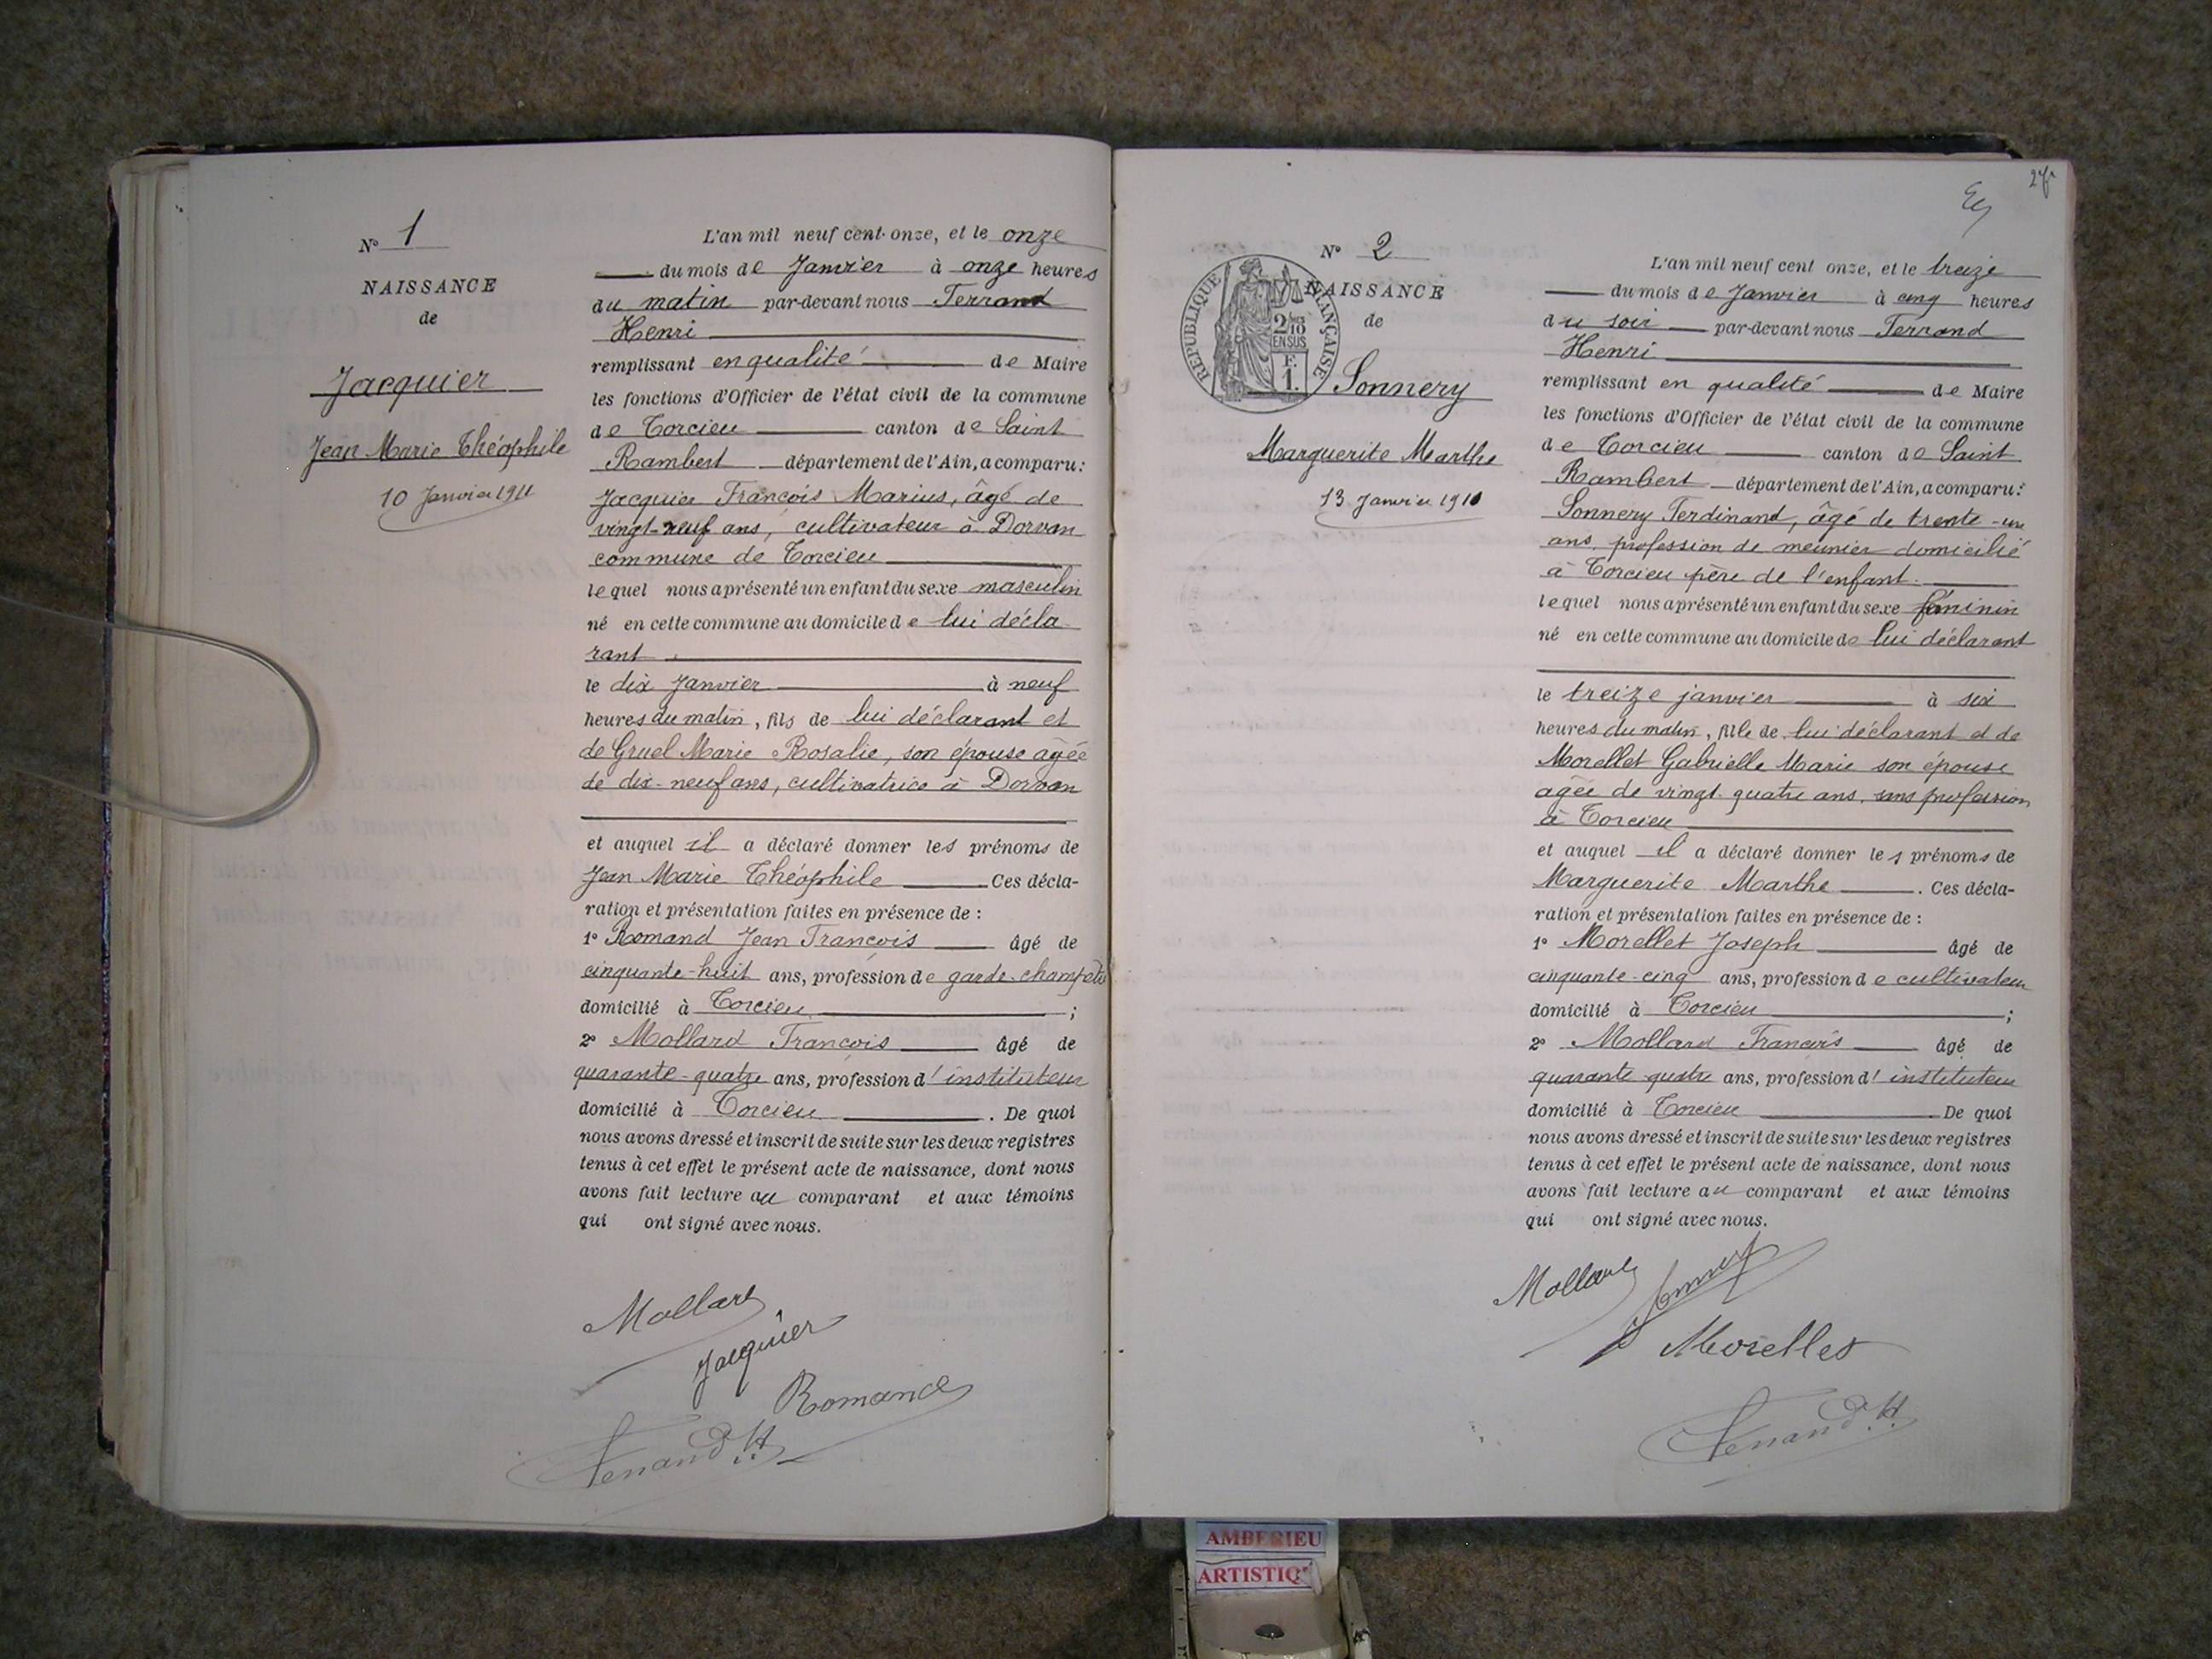 N° 1
NAISSANCE
de
Jacquier
Jean Marie Théophile
10 Janvier 1911
L'an mil neuf cent onze, et le onze
du mois de Janvier à onze heures
du matin par-devant nous Ferrand
Henri
remplissant en qualité de Maire
les fonctions d'Officier de l'état civil de la commune
de Torcieu canton de Saint
Rambert département de l'Ain, a comparu:
Jacquier François Marius, âgé de
vingt-neuf ans, cultivateur à Dorvan
commune de Torcieu
lequel nous a présenté un enfant du sexe masculin
né en cette commune au domicile de lui décla-
rant
le dix Janvier à neuf
heures du matin, fils de lui déclarant et
de Gruel Marie Rosalie, son épouse agée
de dix-neuf ans, cultivatrice à Dorvan
et auquel il a déclaré donner les prénoms de
Jean Marie Théophile Ces décla-
ration et présentation faites en présence de :
1° Romand Jean François âgé de
cinquante-huit ans, profession de garde-champêtre
domicilié à Torcieu ;
2° Mollard François âgé de
quarante-quatre ans, profession d'instituteur
domicilié à Torcieu . De quoi
nous avons dressé et inscrit de suite sur les deux registres
tenus à cet effet le présent acte de naissance, dont nous
avons fait lecture au comparant et aux témoins
qui ont signé avec nous.
Mollard
Jacquier
Romand
Ferrand H.
N° 2
NAISSANCE
de
RÉPUBLIQUE FRANÇAISE
2/10
EN SUS
F.
1.
Sonnery
Marguerite Marthe
13 Janvier 1911
L'an mil neuf cent onze, et le treize
du mois de Janvier à cinq heures
du soir par-devant nous Ferrand
Henri
remplissant en qualité de Maire
les fonctions d'Officier de l'état civil de la commune
de Torcieu canton de Saint
Rambert département de l'Ain, a comparu:
Sonnery Ferdinand, âgé de trente-un
ans, profession de meunier domicilié
à Torcieu père de l'enfant.
lequel nous a présenté un enfant du sexe féminin
né en cette commune au domicile de lui déclarant
le treize janvier à six
heures du matin, fille de lui déclarant et de
Morellet Gabrielle Marie son épouse
agée de vingt-quatre ans, sans profession
à Torcieu
et auquel il a déclaré donner les prénoms de
Marguerite Marthe . Ces décla-
ration et présentation faites en présence de :
1° Morellet Joseph âgé de
cinquante-cinq ans, profession de cultivateur
domicilié à Torcieu ;
2° Mollard François âgé de
quarante quatre ans, profession d'instituteur
domicilié à Torcieu De quoi
nous avons dressé et inscrit de suite sur les deux registres
tenus à cet effet le présent acte de naissance, dont nous
avons fait lecture au comparant et aux témoins
qui ont signé avec nous.
Mollard
Sonnery
Morellet
Ferrand H.
AMBERIEU
ARTISTIQ